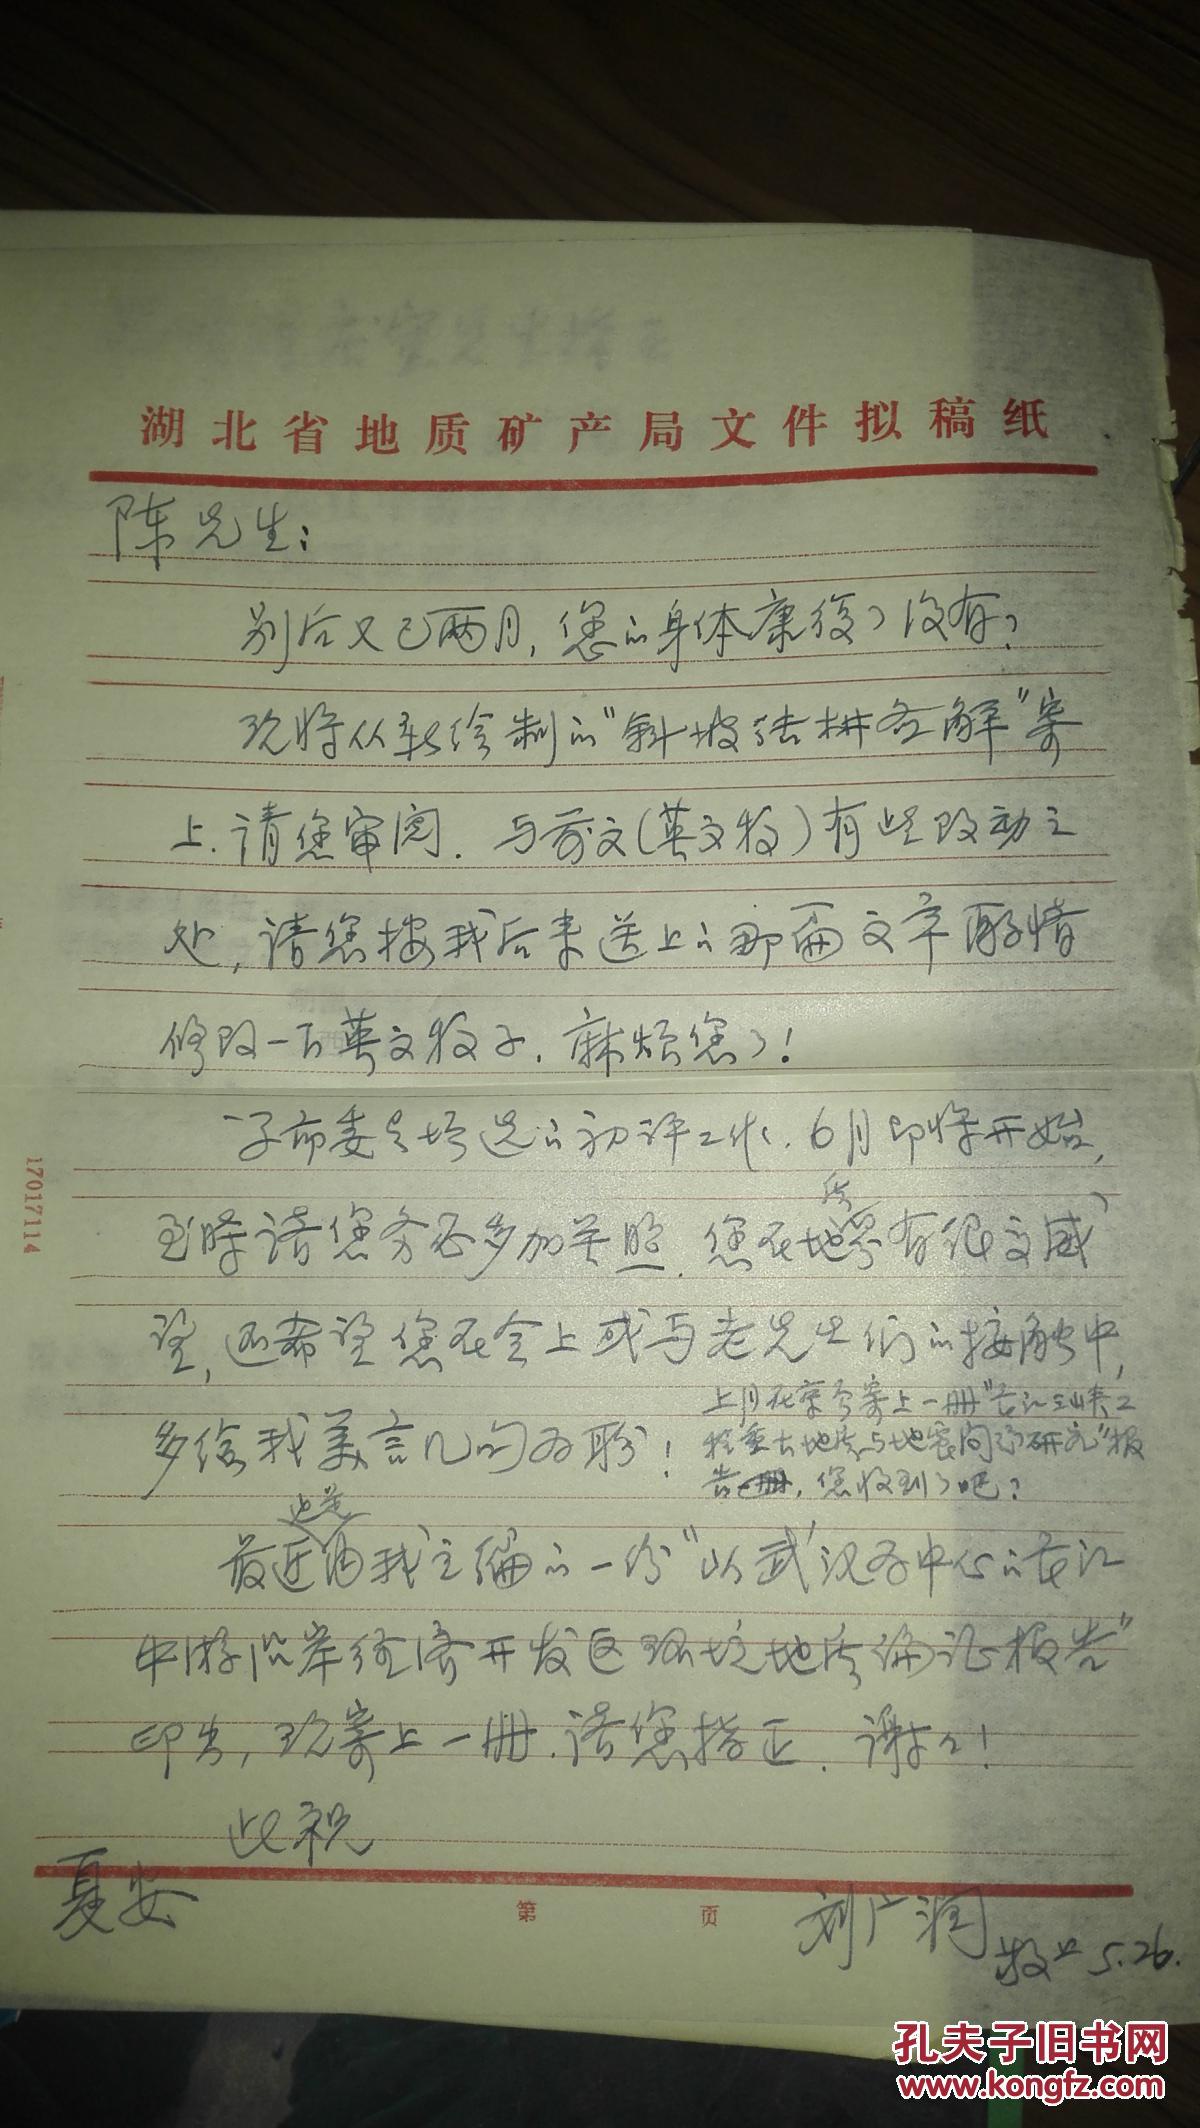 湖北省地质矿产局文件拟稿纸
陈先生：
别后又已两月，您的身体康復了没有？
现将从新绘制的“斜坡结构名解”寄
上．请您审阅．与前文（英文稿）有些改动之
处，请您按我后来送上的那篇文章酌情
修改一下英文稿子．麻烦您了！
学部委员增选的初评工作．6月即将开始，
到时请您务必多加关照．您在地质界有很高威
望，还希望您在会上或与老先生们的接触中，
多给我美言几句为盼！
上月在京曾寄上一册“长江三峡工
程重大地质与地震问题研究”报
告，您收到了吧？
最近由我主编的一份“以武汉为中心的长江
中游沿岸经济开发区环境地质论证报告”
印出，现寄上一册．请您指正．谢谢！
此祝
夏安
第 页
刘广润
敬上 5.26.
17017114
孔夫子旧书网
www.kongfz.com